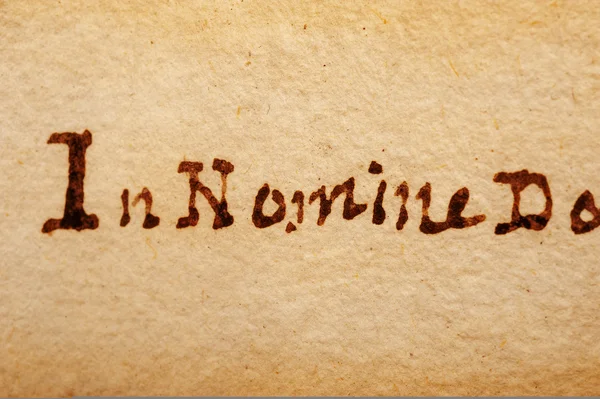 In Nomine Do